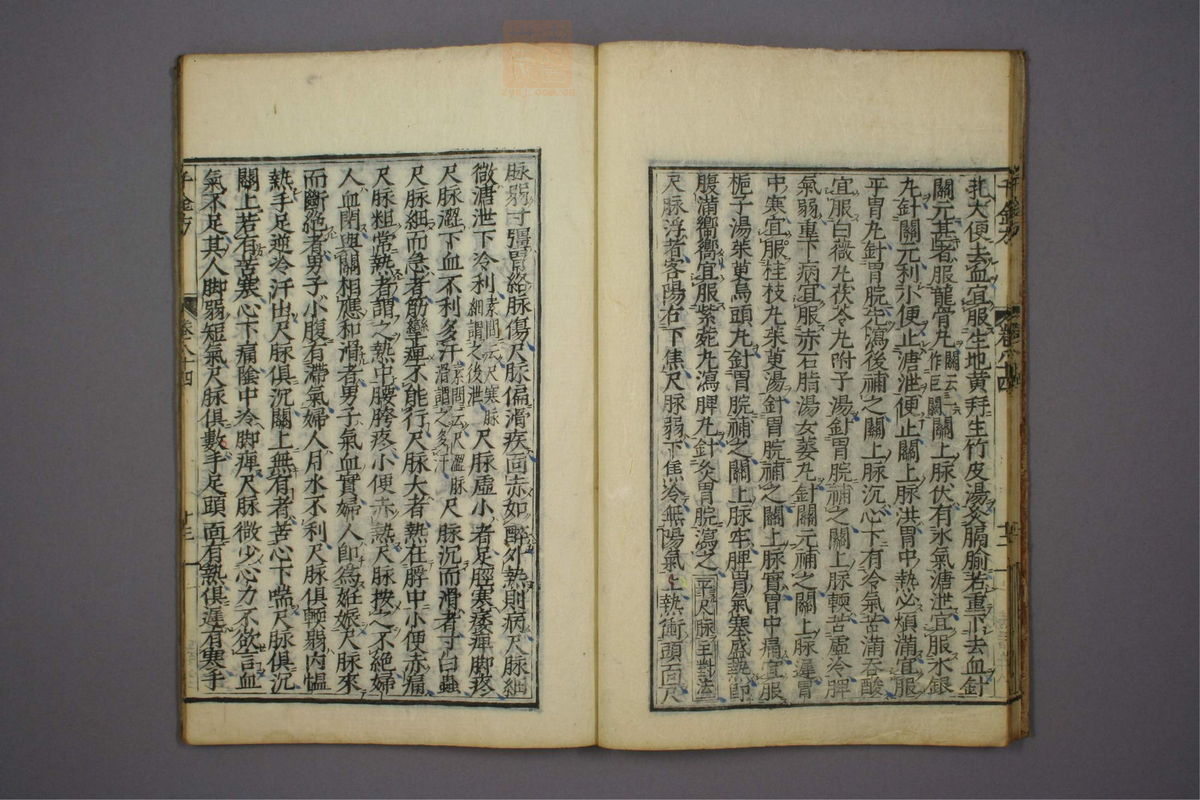 芤大便去血宜服生地黄并生竹皮湯灸膈腧若重下去血針
關元甚者服龍骨丸關上脉伏有水氣溏泄宜服水銀
丸針關元利小便止溏泄便止關上脉洪胃中熱必煩滿宜服
平胃丸針胃脘先瀉後補之關上脉沉心下有冷氣苦滿吞酸
宜服白薇丸茯苓丸附子湯針胃脘補之關上脉軟苦虛冷脾
氣弱重下病宜服赤石脂湯女萎丸針關元補之關上脉遲胃
中寒宜服桂枝丸茱萸湯針胃脘補之關上脉實胃中痛宜服
梔子湯茱萸烏頭丸針胃脘補之關上脉牢脾胃氣塞盛熱即
腹滿嚮嚮宜服紫菀丸瀉脾丸針灸胃脘瀉之平尺脉主對法
尺脉浮者客陽在下焦尺脉弱下焦冷無陽氣上熱衝頭面尺
千金方 卷八十四
脉弱寸彊胃絡脉傷尺脉偏滑疾面赤如醉外熱則病尺脉細
微溏泄下冷利素問云尺寒脉細謂之後泄尺脉虛小者足脛寒痿痺脚疼
尺脉澀下血不利多汗素問云尺澀脉滑謂之多汗尺脉沉而滑者寸白蟲
尺脉細而急者筋攣痺不能行尺脉大者熱在脬中小便赤痛
尺脉粗常熱者謂之熱中腰胯疼小便赤熱尺脉按之不絕婦
人血閉與關相應和滑者男子氣血實婦人即爲妊娠尺脉來
而斷絕者男子小腹有滯氣婦人月水不利尺脉俱軟弱內愠
熱手足逆冷汗出尺脉俱沉關上無有者苦心下喘尺脉俱沉
關上若有苦寒心下痛陰中冷脚痺尺脉微少心力不欲言血
氣不足其人脚弱短氣尺脉俱數手足頭面有熱俱遲有寒手
千金方 卷八十四 十三